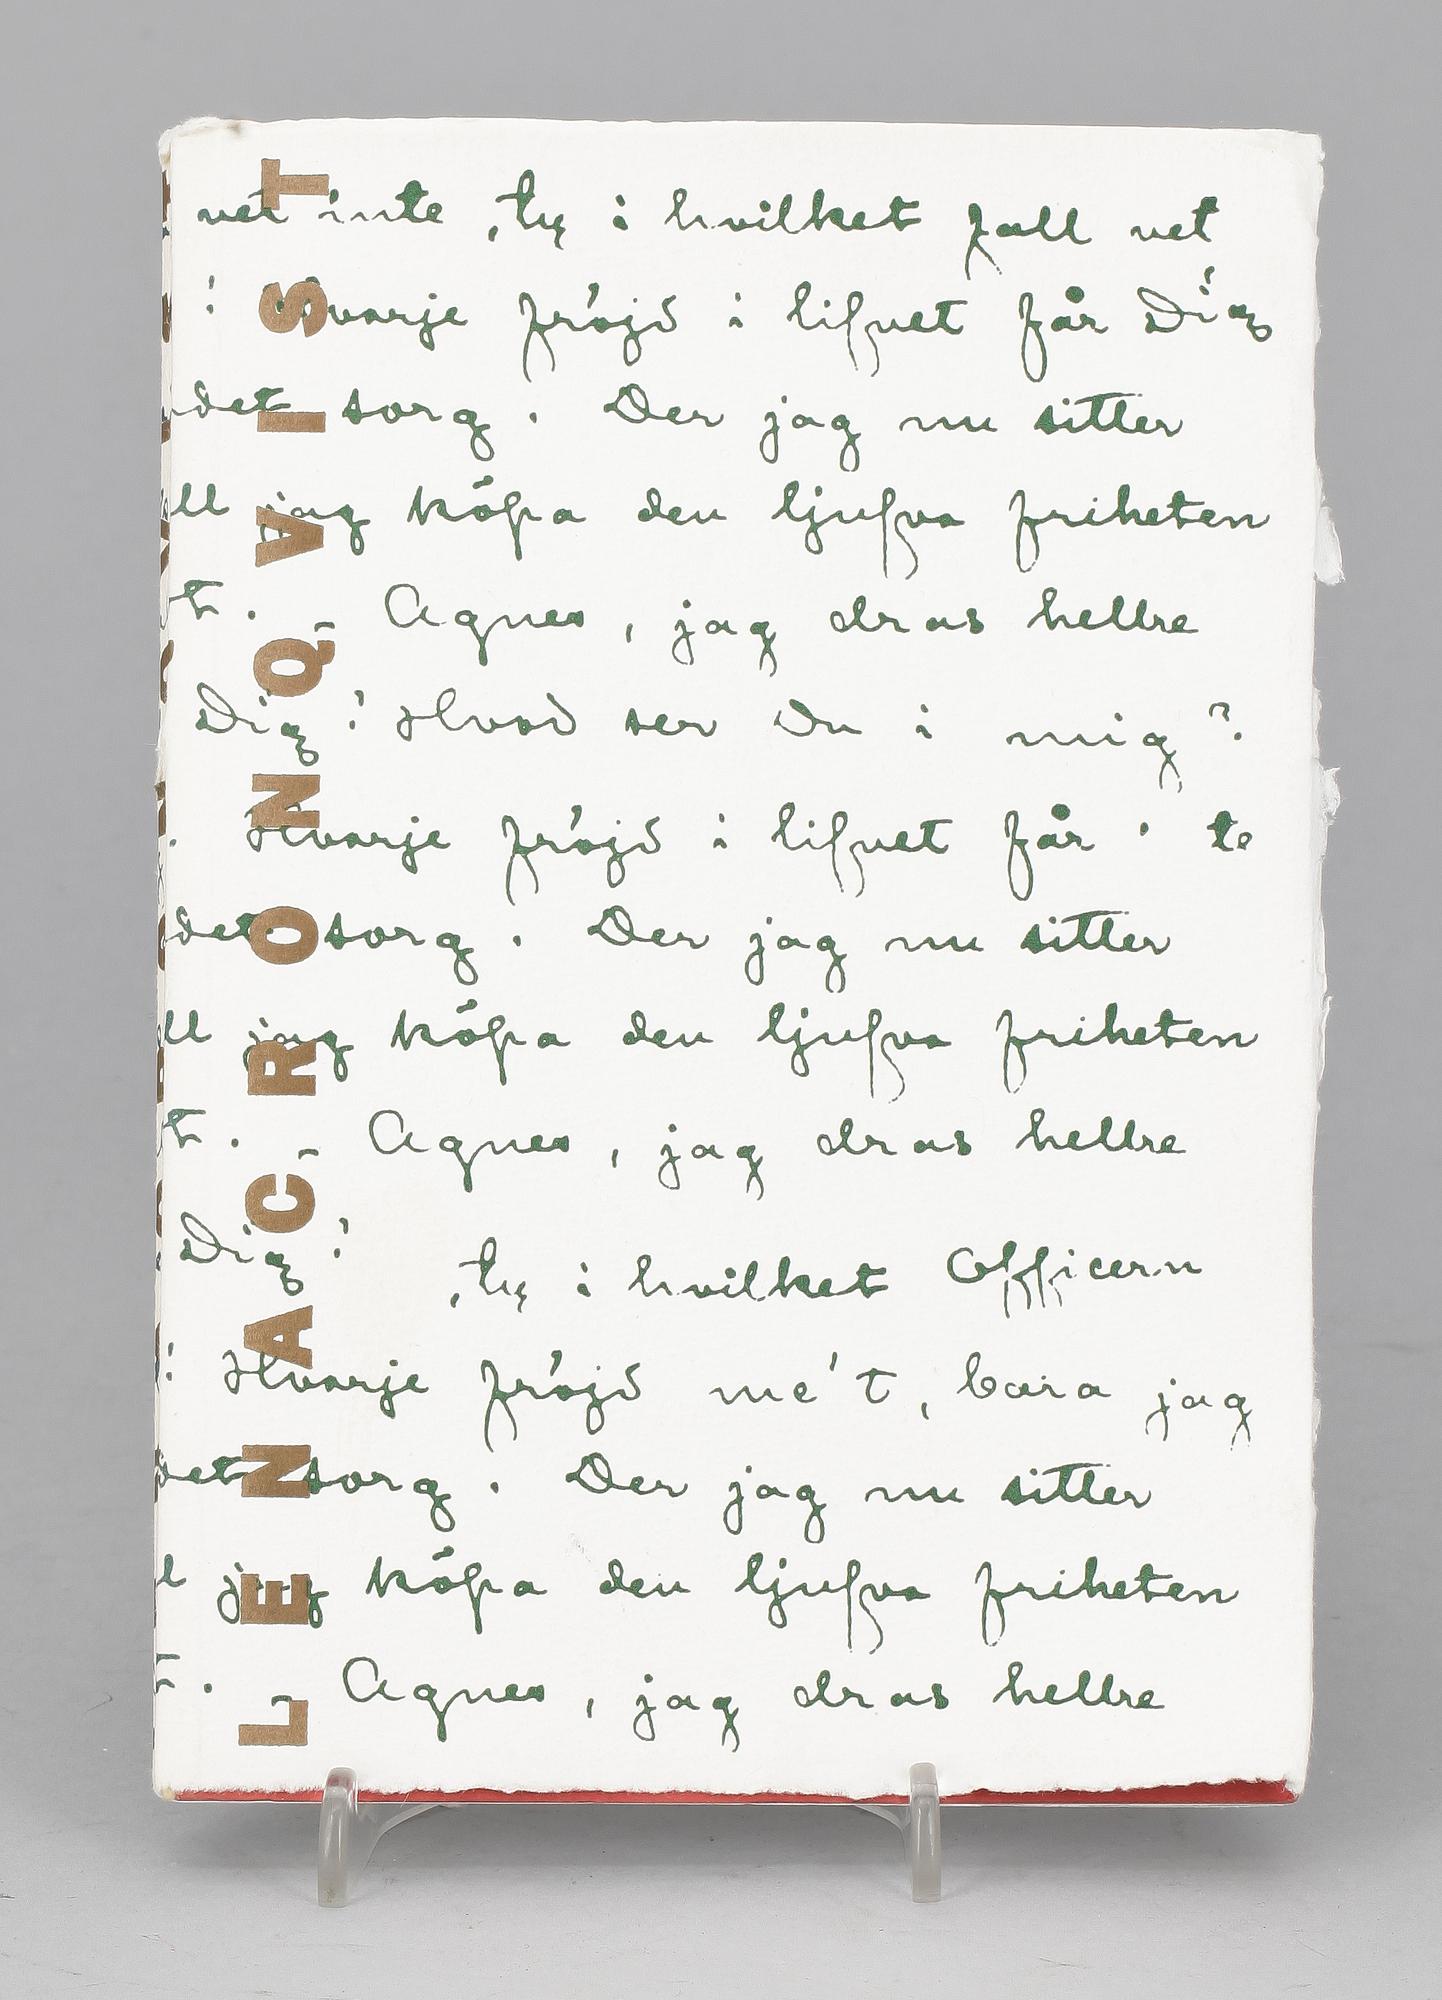 LENA CRONQVIST
vet inte, ty i hvilket fall vet
: varje fröjd i lifvet får Dig
det sorg. Der jag nu sitter
ll jag köpa den ljufva friheten
t. Agnes, jag dras hellre
Dig! Hvad ser Du i mig?
. Hvarje fröjd i lifvet får te
det sorg. Der jag nu sitter
ll jag köpa den ljufva friheten
t. Agnes, jag dras hellre
Dig! , ty i hvilket Officern
: Hvarje fröjd me't, bara jag
det sorg. Der jag nu sitter
l jag köpa den ljufva friheten
t. Agnes, jag dras hellre